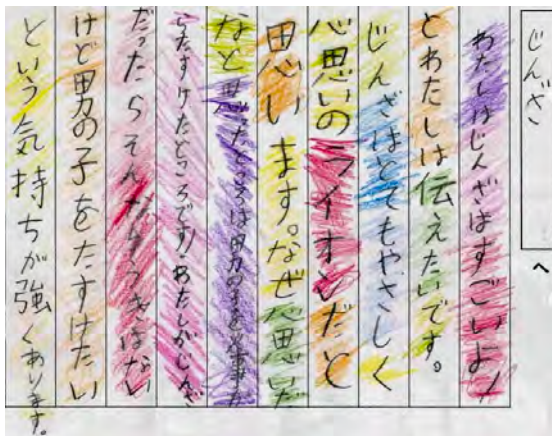 じんざ
へ
わたしはじんざはすごいよ!
とわたしは伝えたいです。
じんざはとてもやさしく
心思いのライオンだと
思います。なぜ心思いだ
なと思ったところは男の子を火事か
らたすけたところです。わたしがじんざ
だったらそんなゆうきはない
けど男の子をたすけたい
という気持ちが強くあります。